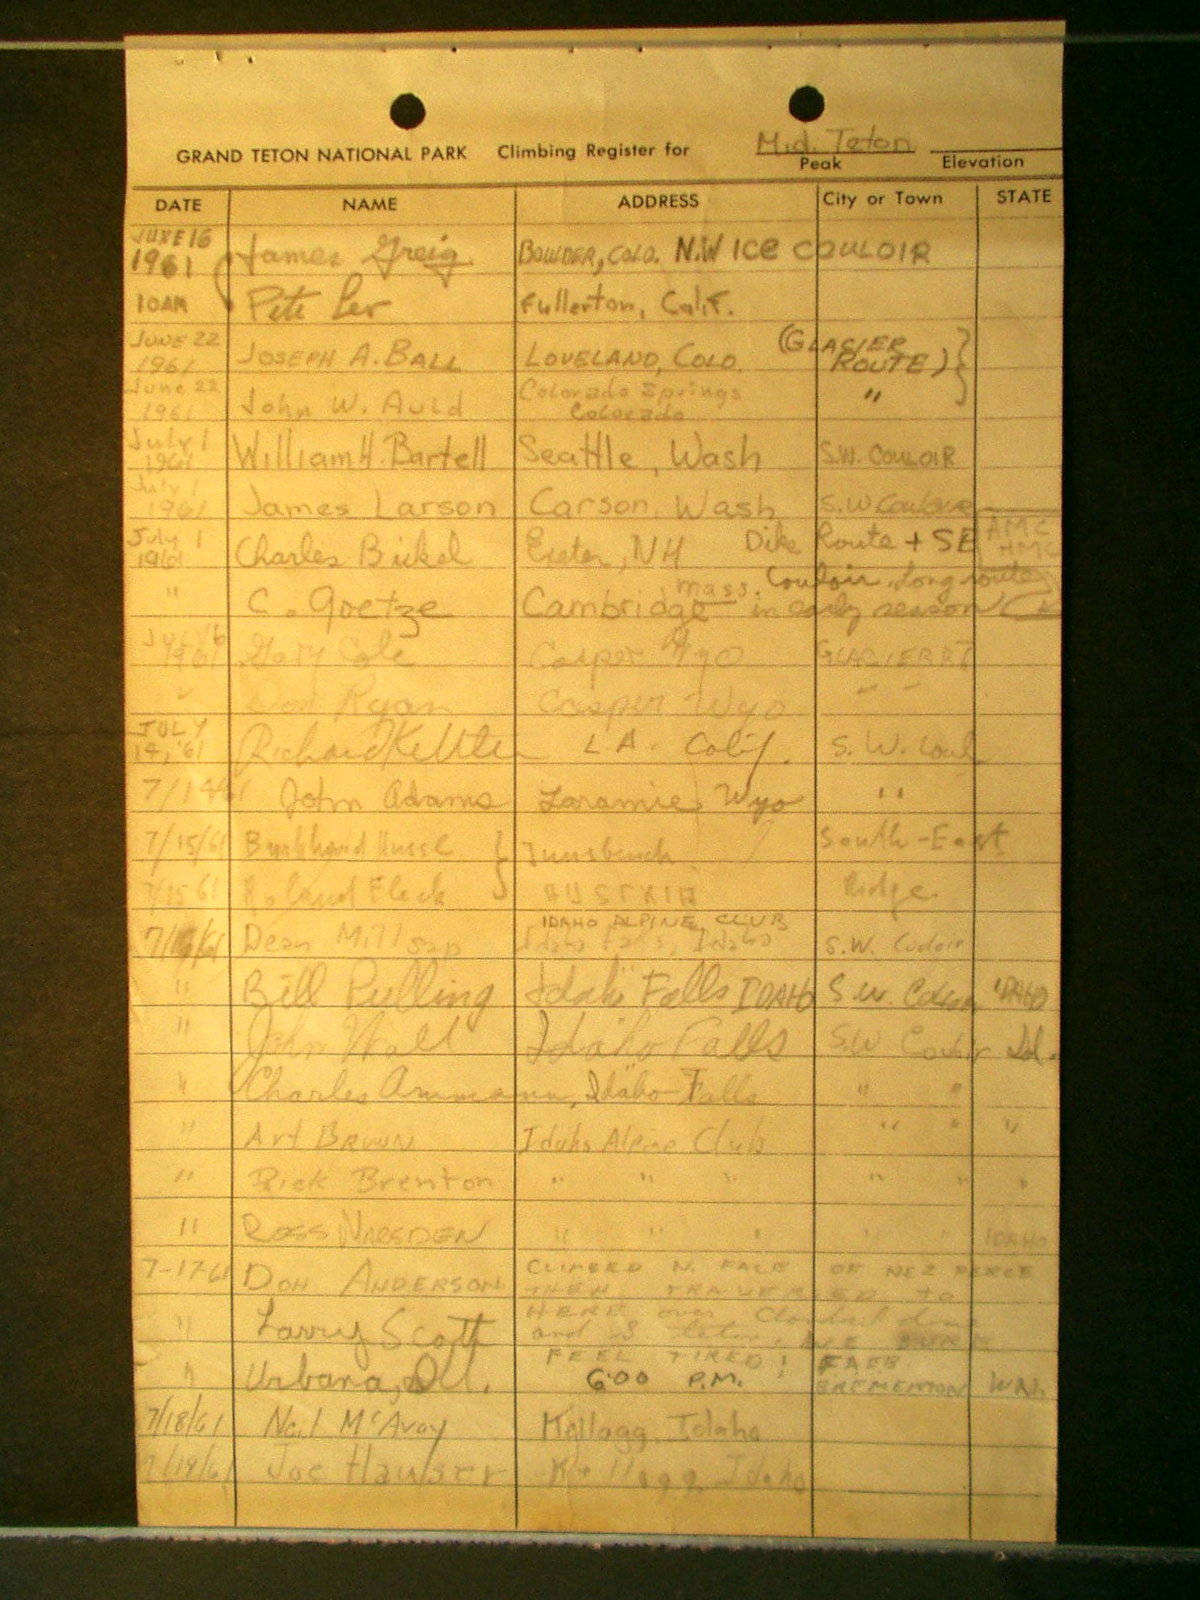 Mid. Teton
GRAND TETON NATIONAL PARK Climbing Register for Peak Elevation
DATE NAME ADDRESS City or Town STATE
JUNE 16 1961 James Greig BOULDER, COLO. N.W ICE COULOIR
10AM Pete Lev Fullerton, Calif.
JUNE 22 1961 JOSEPH A. BALL LOVELAND, COLO. (GLACIER ROUTE)
June 22 1961 John W. Auld Colorado Springs Colorado "
July 1 1961 William H. Bartell Seattle, Wash S.W. COULOIR
July 1 1961 James Larson Carson, Wash S.W Couloir
July 1 1961 Charles Bickel Exeter, NH Dike Route + SE AMC HMC
" C. Goetze Cambridge Mass. Couloir. Long route in early season
1961 Gary Cole Casper Wyo GLACIER RT
" Don Ryan Casper Wyo " "
JULY 14, '61 Richard L.A. Calif. S. W. Coul
7/14/61 John Adams Laramie, Wyo "
7/15/61 Innsbruck South-East
7/15 61 Roland Fleck AUSTRIA Ridge
IDAHO ALPINE CLUB
Dean Millsap Idaho Falls, Idaho S.W. Couloir
" Bill Pulling Idaho Falls IDAHO S.W. IDAHO
" John Wall Idaho Falls S.W Id.
" Charles Ammann, Idaho Falls " "
" Art Brown Idaho Alpine Club " " "
" Rick Brenton " " " " " "
" ROSS " " " " " IDAHO
7-17-61 DON ANDERSON CLIMBED N. FACE OF NEZ PERCE
THEN TRAVERSED TO
" Larry Scott HERE over Cloudveil dome
and S teton. WE SURE
FEEL TIRED!
" Urbana, Ill. 6:00 P.M. BREMERTON WN.
7/18/61 Neil McAvoy Kellogg, Idaho
7/19/61 Joe Hauser Kellogg Idaho